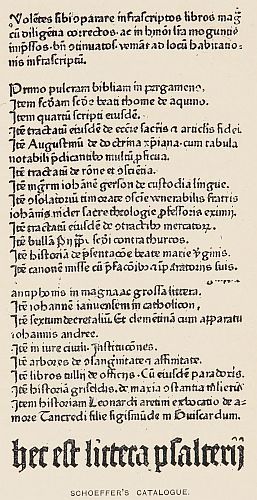 Volētes sibi ↄparare infrascriptos libros magͣ cū
diligētia correctos, ac in hmōi lr̄a moguntie
imp̄ssos, bn̄ ↄtinuatos, veniāt ad locū habitatio-
nis infrascriptū.
Primo pulcram bibliam in pergameno.
Item scd̄am scd̄e beati thome de aquino.
Item quartū scripti eiusdē.
Itē tractatū eiusdē de eccīe sacr̄is ⁊ articlīs fidei.
Itē Augustinū de doctrina xp̄iana, cum tabula
notabili p̄dicantibꝰ multū ꝓficua.
Itē tractatū de rōne et ↄsciētia.
Itē mgr̄m ioh̄annē gerson de custodia lingue.
Itē ↄsolatoriū timorate ↄscīe venerabilis fratris
ioh̄anis nider sacre theologie ꝓfessoris eximij.
Itē tractatū eiusdē de ↄtractibꝰ mercatorꝝ.
Itē bullā pij pp̄. scd̄i contra thurcos.
Itē historiā de p̄sentacōe beate marie v̓ginis.
Itē canonē misse cū p̄facōibꝰ ⁊
antiphonis in magna ac grossa littera.
Itē iohannē ianuensem in catholicon,
Itē sextum decretaliū. Et clemētinā cum apparatu
iohannis andree.
Itē in iure ciuili. Institucōnes.
Itē arbores de ↄsangūitate ⁊ affinitate.
Itē libros tullij de officijs. Cū eiusdēm paradoxis.
Itē historiā griseldis, de maxīa ↄstantia mulierū
Item historiam Leonardi aretini ex bocatio de a-
more Tancredi filie sigismūde in Guiscardum.
hec est littera psalterij
SCHOEFFER'S CATALOGUE.